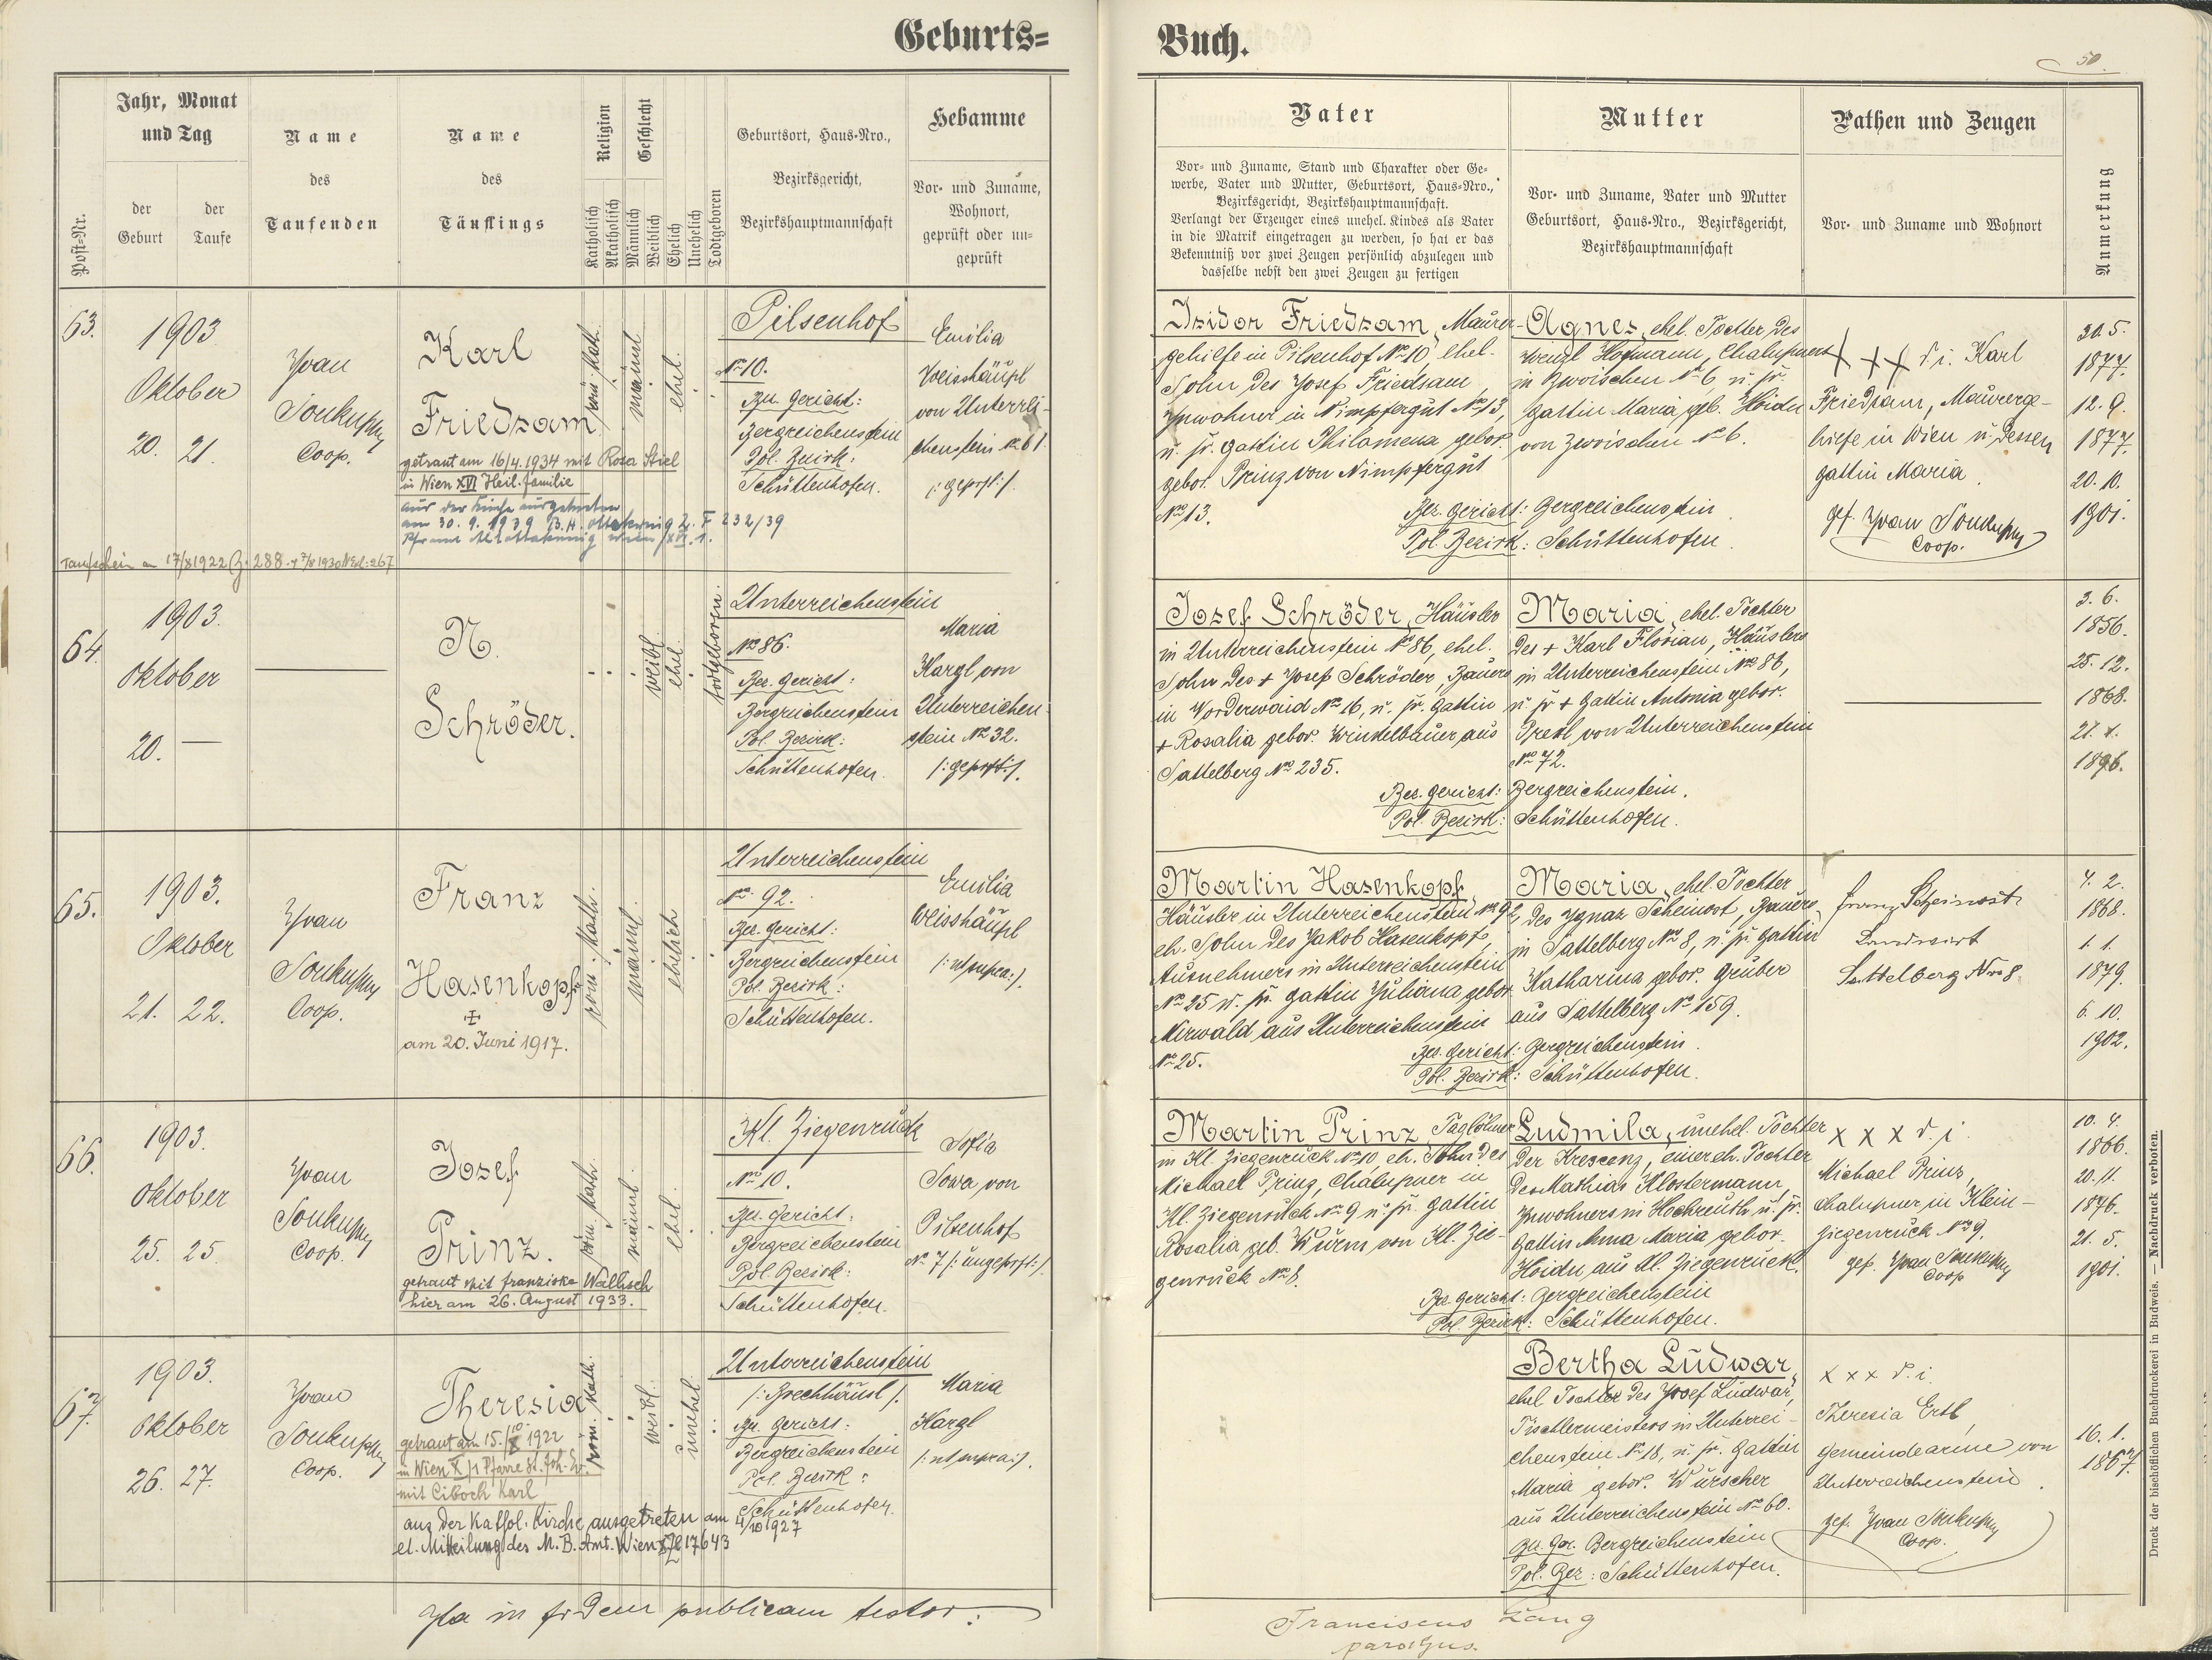 Geburts=
Jahr, Monat
und Tag
Post=Nr.
der
Geburt
der
Taufe
Name
des
Taufenden
Name
des
Täuflings
Religion
Katholisch
Akatholisch
Geschlecht
Männlich
Weiblich
Ehelich
Unehelich
Todtgeboren
Geburtsort, Haus=Nro.,
Bezirksgericht,
Bezirkshauptmannschaft
Hebamme
Vor= und Zuname,
Wohnort,
geprüft oder un=
geprüft
63.
1903
Oktober
20. 21.
Yvan
Soukupy
Coop.
Karl
Friedsam
getraut am 16/4.1934 mit Rosa Stiel
in Wien XVI Heil. Familie
aus der Kirche ausgetreten
am 30. 9. 1939 B.H. Ottakring Z. F 232/39
Pframt Altottakring Wien XVI. 1.
Taufschein am 17/8 1922 Z. 288
röm. kath.
männl.
ehel.
Pilsenhof
No 10.
Bez. Gericht:
Bergreichenstein
Pol. Bezirk:
Schüttenhofen.
Emilia
Weisshäupl
von Unterrei-
chenstein No 61
/: geprft :/.
64.
1903.
Oktober
20. —
N.
Schröder.
weibl.
ehel.
todtgeboren
Unterreichenstein
No 86.
Bez. Gericht:
Bergreichenstein
Pol. Bezirk:
Schüttenhofen.
Maria
Kargl von
Unterreichen-
stein No 32.
/: geprft :/.
65.
1903.
Oktober
21. 22.
Yvan
Soukupy
Coop.
Franz
Hasenkopf
+
am 20. Juni 1917.
röm. kath.
männl.
ehelich
Unterreichenstein
No 92.
Bez. Gericht:
Bergreichenstein
Pol. Bezirk:
Schüttenhofen.
Emilia
Weisshäupl
/: ut supra :/.
66.
1903.
Oktober
25. 25.
Yvan
Soukupy
Coop.
Josef
Prinz.
getraut mit Franziska Wallisch
hier am 26. August 1933.
röm. kath.
männl.
ehel.
Kl. Ziegenruck
No 10.
Bez. Gericht:
Bergreichenstein
Pol. Bezirk:
Schüttenhofen.
Sofia
Sowa von
Pilsenhof
No 7 /: ungeprft :/.
67.
1903.
Oktober
26. 27.
Yvan
Soukupy
Coop.
Theresia
getraut am 15./10 1922
in Wien X /1 Pfarre St. Joh. Ev.
mit Ciboch Karl
aus der Kathol. Kirche ausgetreten am 4/10 1927
el. Mitteilung des M. B. Amt. Wien 17643
röm. kath.
weibl.
unehel.
Unterreichenstein
/: Brechhäusl :/.
Bez. Gericht:
Bergreichenstein
Pol. Bezirk:
Schüttenhofen.
Maria
Kargl
/: ut supra :/.
Ita in fidem publicam testor:
Buch.
50.
Vater
Vor= und Zuname, Stand und Charakter oder Ge=
werbe, Vater und Mutter, Geburtsort, Haus=Nro.,
Bezirksgericht, Bezirkshauptmannschaft.
Verlangt der Erzeuger eines unehel. Kindes als Vater
in die Matrik eingetragen zu werden, so hat er das
Bekenntniß vor zwei Zeugen persönlich abzulegen und
dasselbe nebst den zwei Zeugen zu fertigen
Mutter
Vor= und Zuname, Vater und Mutter
Geburtsort, Haus=Nro., Bezirksgericht,
Bezirkshauptmannschaft
Pathen und Zeugen
Vor= und Zuname und Wohnort
Anmerkung
Isidor Friedsam, Maurer-
gehilfe in Pilsenhof No 10, ehel.
Sohn des Josef Friedsam,
Inwohner in Nimpfergut No 13,
u. sr. Gattin Philomena gebor.
gebor. Prinz von Nimpfergut
No 13.
Bez. Gericht: Bergreichenstein
Pol. Bezirk: Schüttenhofen.
Agnes, ehel. Tochter des
Wenzl Hofmann, Chalupners
in Zwoischen No 6, u. sr.
Gattin Maria geb. Hoidn
von Zwoischen No 6.
XXX d. i. Karl
Friedsam, Maurerge-
hilfe in Wien u. dessen
Gattin Maria.
gef. Yvan Soukupy
Coop.
30. 5.
1877.
12. 9.
1877.
20. 10.
1901.
Josef Schröder, Häusler
in Unterreichenstein No 86, ehel.
Sohn des + Josef Schröder, Bauers
in Vorderwaid No 16, u. sr. Gattin
+ Rosalia gebor. Windelbauer aus
Sattelberg No 235.
Bez. Gericht: Bergreichenstein.
Pol. Bezirk: Schüttenhofen.
Maria, ehel. Tochter
des + Karl Florian, Häuslers
in Unterreichenstein No 86,
u. sr + Gattin Antonia gebor.
Prexl von Unterreichenstein
No 72.
3. 6.
1856.
25. 12.
1868.
21. X.
1896.
Martin Hasenkopf,
Häusler in Unterreichenstein No 92,
eh. Sohn des Jakob Hasenkopf,
Ausnehmers in Unterreichenstein
No 25 u. sr. Gattin Juliana gebor.
Nirwald aus Unterreichenstein
No 25.
Bez. Gericht: Bergreichenstein.
Pol. Bezirk: Schüttenhofen.
Maria, ehel. Tochter
des Ignaz Scheinost, Bauers
in Sattelberg No 8, u. sr. Gattin
Katharina gebor. Gruber
aus Sattelberg No 159.
Franz Scheinost
Landwirt
Sattelberg Nro 8
4. 2.
1868.
1. 1.
1879.
6. 10.
1902.
Martin Prinz, Taglöhner
in Kl. Ziegenruck No 10, eh. Sohn des
Michael Prinz, Chalupner in
Kl. Ziegenruck No 9 u. sr. Gattin
Rosalia geb. Wurm von Kl. Zie-
genruck No 8.
Bez. Gericht: Bergreichenstein
Pol. Bezirk: Schüttenhofen.
Ludmila, unehel. Tochter
der Kreszenz, einer eh. Tochter
des Mathias Klostermann,
Inwohners in Hochreuth u. sr.
Gattin Anna Maria gebor.
Hoidn aus Kl. Ziegenruck.
x x x d. i.
Michael Prinz,
Chalupner in Klein-
Ziegenruck No 9.
gef. Yvan Soukupy
Coop
10. 4.
1866.
20. 11.
1876.
21. 5.
1901.
Bertha Ludwar,
ehel. Tochter des Josef Ludwar,
Tischlermeisters in Unterrei-
chenstein No 18, u. sr. Gattin
Maria gebor. Würscher
aus Unterreichenstein No 60.
Bez. Ger. Bergreichenstein
Pol. Bez: Schüttenhofen.
x x x d. i.
Theresia Ertl,
Gemeindearme von
Unterreichenstein.
gef. Yvan Soukupy
Coop.
16. 1.
1867.
Franciscus Lang
parochus.
Druck der bischöflichen Buchdruckerei in Budweis. — Nachdruck verboten.